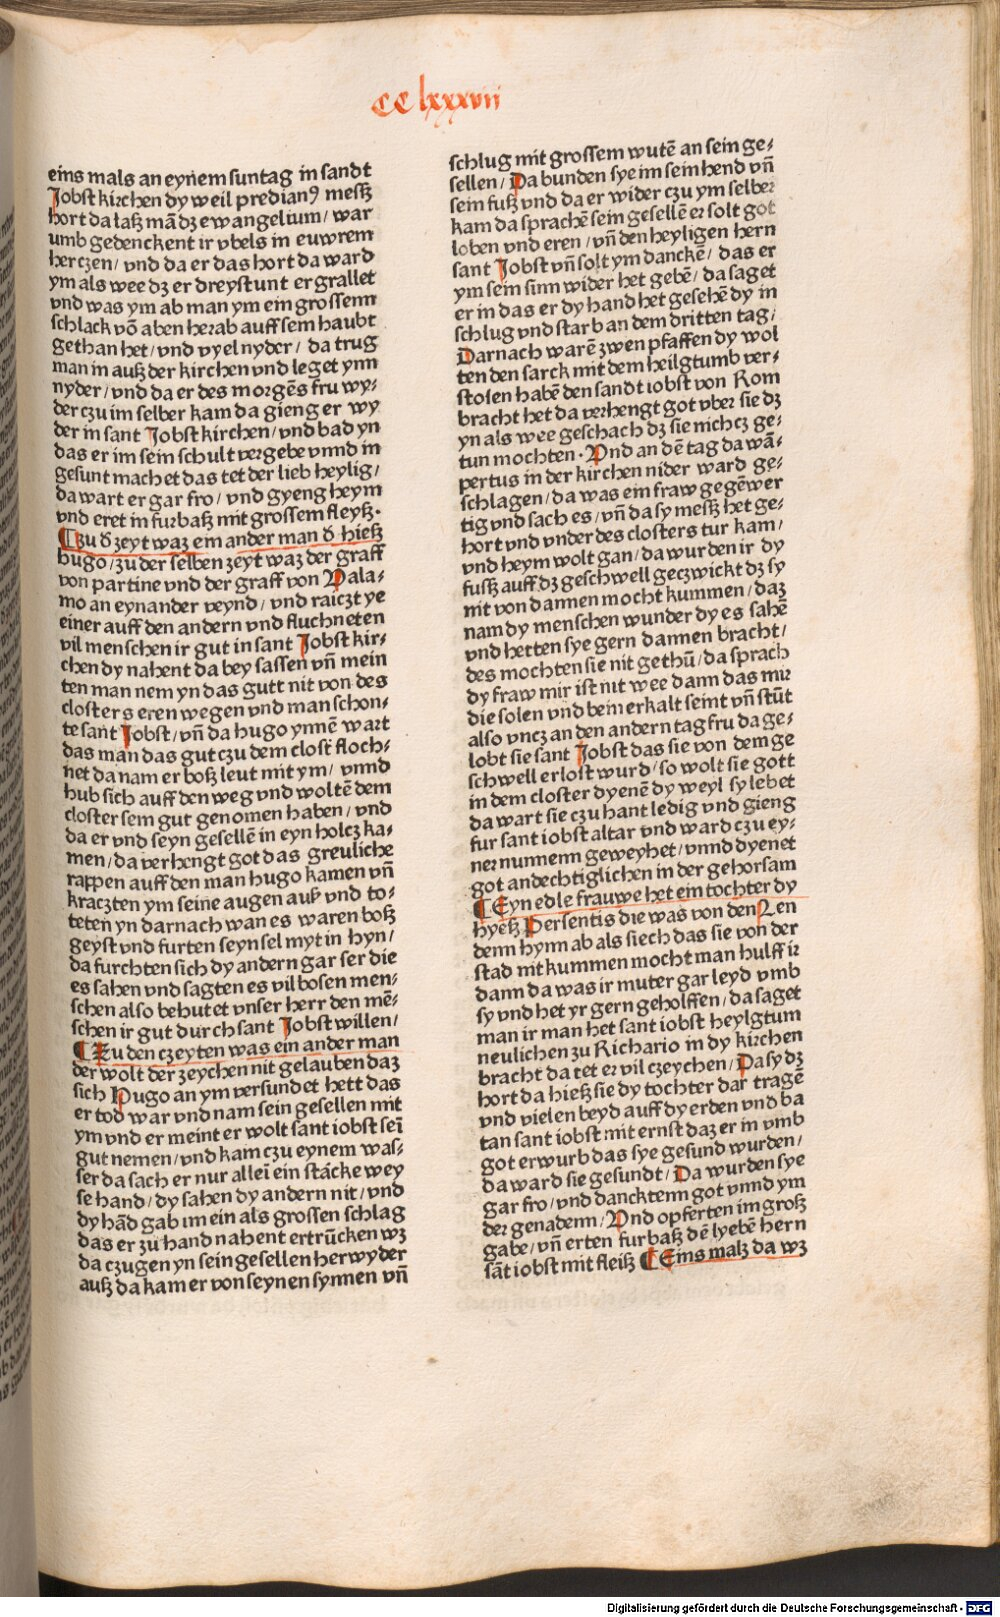 CClxxxvii
eins mals an eynem suntag in sandt
Jobst kirchen dy weil predian9 mesß
hort da laß mā dz ewangelium/ war
umb gedenckent ir vbels in euwrem
herczen/ vnd da er das hort da ward
ym als wee dz er dreystunt ergrallet
vnd was ym ab man ym ein grossenn
schlack vō aben herab auff sem haubt
gethan het/ vnd vyel nyder/ da trug
man in auß der kirchen vnd leget ynn
nyder/ vnd da er des morgēs fru wy-
der czu im selber kam da gieng er wy
der in sant Jobst kirchen/ vnd bad yn
das er im sein schult vergebe vnnd in
gesunt machet das tet der lieb heylig/
da wart er gar fro/ vnd gyeng heym
vnd eret in furbaß mit grossem fleyß.
Czu đ zeyt waz em ander man đ hieß
hugo/ zu der selben zeyt waz der graff
von partine vnd der graff von Pala-
mo an eynander veynd/ vnd raiczt ye
einer auff den andern vnd fluchneten
vil menschen ir gut in sant Jobst kir-
chen dy nahent da bey sassen vn̄ mein
ten man nem yn das gutt nit von des
closters eren wegen vnd man schon-
te sant Jobst/ vn̄ da hugo ynnē wart
das man das gut czu dem clost floch-
net da nam er boß leut mit ym/ vnnd
hub sich auff den weg vnd woltē dem
closter sem gut genomen haben/ vnd
da er vnd seyn gesellē in eyn holcz ka-
men/ da verhengt got das greuliche
rappen auff den man hugo kamen vn̄
kraczten ym seine augen auß vnd to-
teten yn darnach wan es waren boß
geyst vnd furten seyn sel myt in hyn/
da furchten sich dy andern gar ser die
es sahen vnd sagten es vil bosen men-
schen also behutet vnser herr den mē-
schen ir gut durch sant Jobst willen/
Zu den czeyten was ein ander man
der wolt der zeychen nit gelauben daz
sich Hugo an ym versundet hett das
er tod war vnd nam sein gesellen mit
ym vnd er meint er wolt sant iobst seī
gut nemen/ vnd kam czu eynem was-
ser da sach er nur alleī ein starcke wey
se hand/ dy sahen dy andern nit/ vnd
dy hād gab im ein als grossen schlag
das er zu hand nahent ertrūcken wz
da czugen yn sein gesellen her wyder
auß da kam er von seynen synnen vn̄
schlug mit grossem wutē an sein ge-
sellen/ Da bunden sye im sein hend vn̄
sein fuß vnd da er wider czu ym selber
kam da sprachē sein gesellē er solt got
loben vnd eren/ vn̄ den heyligen hern
sant Jobst vn̄ solt ym danckē/ das er
ym sein sinn wider het gebē/ da saget
er in das er dy hand het gesehē dy in
schlug vnd starb an dem dritten tag/
Darnach warē zwen pfaffen dy wol
ten den sarck mit dem heilgtumb ver-
stolen habē den sandt iobst von Rom
bracht het da verhengt got vber sie dz
yn als wee geschach dz sie nichcz ge-
tun mochten. Vnd an dē tag da wā-
pertus in der kirchen nider ward ge-
schlagen/ da was ein fraw gegēwer
tig vnd sach es/ vn̄ da sy mesß het ge-
hort vnd vnder des closters tur kam/
vnd heym wolt gan/ da wurden ir dy
fusß auff dz geschwell geczwickt dz sy
nit von dannen mocht kummen/ daz
nam dy menschen wunder dy es sahē
vnd hetten sye gern dannen bracht/
des mochten sie nit gethū/ da sprach
dy fraw mir ist nit wee dann das mir
die solen vnd bein erkalt seint vn̄ stūt
also vncz an den andern tag fru da ge-
lobt sie sant Jobst das sie von dem ge
schwell erlost wurd/ so wolt sie gott
in dem closter dyenē dy weyl sy lebet
da wart sie czu hant ledig vnd gieng
fur sant iobst altar vnd ward czu ey-
ner nunnenn geweyhet/ vnnd dyenet
got andechtiglichen in der gehorsam
Eyn edle frauwe het ein tochter dy
hyeß Persentis die was von den Len
denn hynn ab als siech das sie von der
stad nit kummen mocht man hulff ir
dann da was ir muter gar leyd vmb
sy vnd het yr gern geholffen/ da saget
man ir man het sant iobst heylgtum
neulichen zu Richario in dy kirchen
bracht da tet er vil czeychen/ Da sy dz
hort da hieß sie dy tochter dar tragē
vnd vielen beyd auff dy erden vnd ba
tan sant iobst mit ernst daz er in vmb
got erwurb das sye gesund wurden/
da ward sie gesundt/ Da wurden sye
gar fro/ vnd dancktenn got vnnd ym
der genadenn/ Vnd opferten im groß
gabe/ vn̄ erten furbaß dē lyebē hern
sāt iobst mit fleiß Eins malz da wz
Digitalisierung gefördert durch die Deutsche Forschungsgemeinschaft - DFG